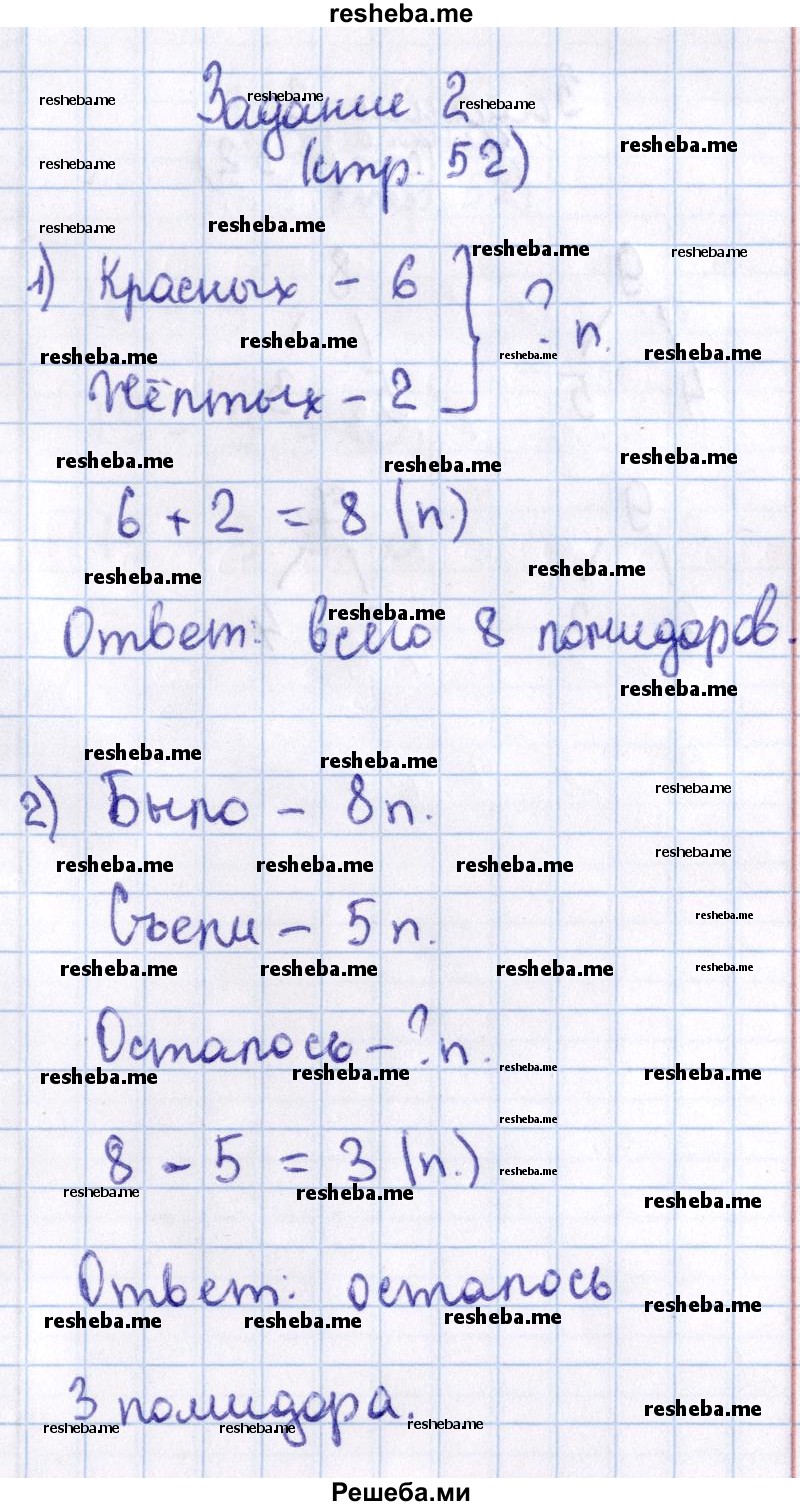 resheba.me
Задание 2
(стр. 52)
1) Красных - 6
Жёлтых - 2 } ? п.
6 + 2 = 8 (п.)
Ответ: всего 8 помидоров.
2) Было - 8 п.
Съели - 5 п.
Осталось - ? п.
8 - 5 = 3 (п.)
Ответ: осталось
3 помидора.
Решеба.ми